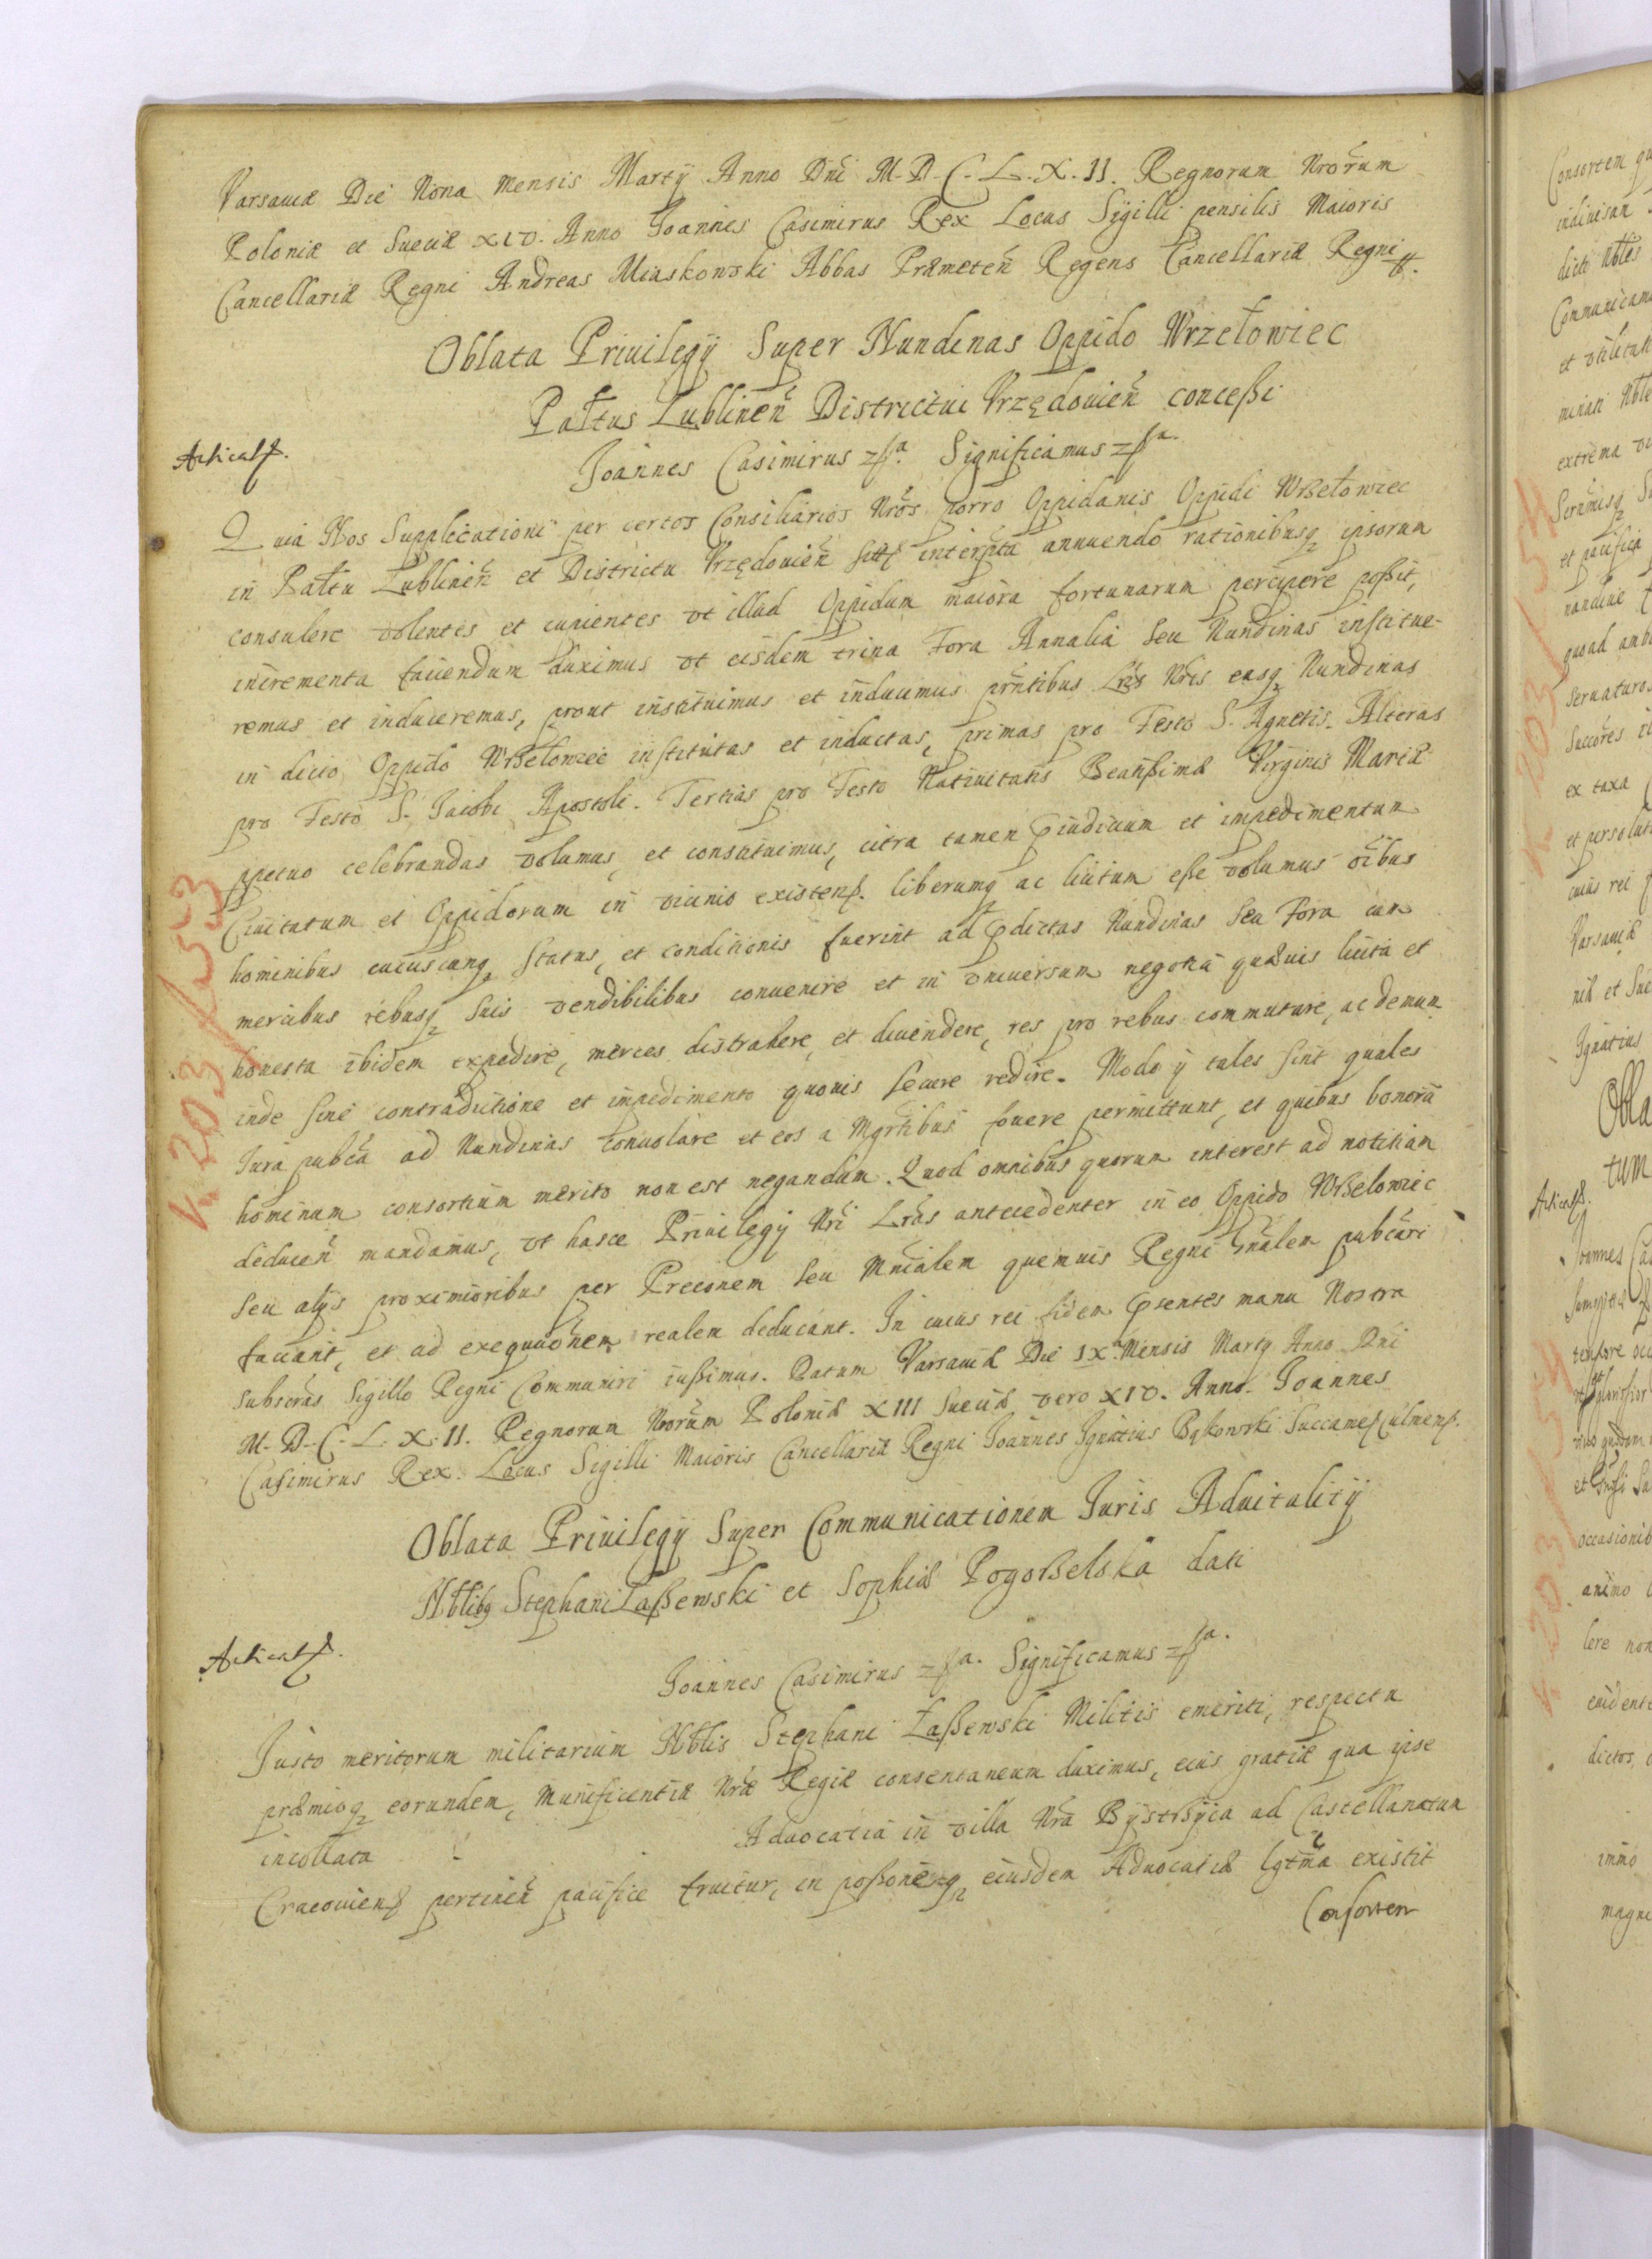 Varsauiæ Die Nona Mensis Martÿ Anno Dni M-D-C-L-X-II. Regnorum Nrorum
Poloniæ et Sueciæ XIV. Anno Joannes Casimirus Rex Locus Sigilli pensilis Maioris
Cancellariæ Regni Andreas Miaskowski Abbas Præmeten Regens Cancellariæ Regni
Oblata Priuilegÿ Super Nundinas Oppido Wrzelowiec
Paltus Lublinen Districtui Vrzędouien conceßi
Joannes Casimirus Significamus
Quia Nos Supplicationi per certos Consiliarios Nros porro Oppidanis Oppidi Wrßelowiec
in Paltu Lublinen et Districtu Vrzędouien interpta annuendo rationibusq ipsorum
consulere volentes et cupientes vt illud Oppidum maiora fortunarum percipere poßit,
incrementa faciendum duximus vt eisdem trina Fora Annalia seu Nundinas institue-
remus et induceremus, prout instituimus et inducimus pntibus Lris Nris easq Nundinas
in dicto Oppido Wrßelowiec institutas et inductas, primas pro Festo S. Agnetis. Alteras
pro Festo S. Jacobi Apostoli. Tertias pro Festo Natiuitatis Beatißimæ Virginis Mariæ
ppetuo celebrandas volumus, et constituimus, citra tamen piudicium et impedimentum
Ciuitatum et Oppidorum in vicinio existen. liberumq ac licitum eße volumus oibus
hominibus cuiuscunq status, et conditionis fuerint ad pdictas Nundinas seu Fora cum
mercibus rebusq suis vendibilibus conuenire et in vniuersum negotia quæuis licita et
honesta ibidem expedire, merces distrahere, et diuendere, res pro rebus commutare, ac demum
inde sine contradictione et impedimento quouis secure redire. Modo ÿ tales sint quales
Jura pubca ad Nundinas conuolare et eos a Mgrtibus fouere permittunt, et quibus bonoru
hominum consortium merito non est negandum. Quod omnibus quorum interest ad notitiam
deducen mandamus, vt hasce Priuilegÿ Nri Lras antecedenter in eo Oppido Wrßelowiec
seu alÿs proximioribus per Preconem seu Mnialem quemuis Regni gnalem pubcari
faciant, et ad exequutionem realem deducant. In cuius rei fidem psentes manu Nostra
subscras Sigillo Regni Communiri iußimus. Datum Varsauiæ Die IX Mensis Martÿ Anno Dni
M-D-C-L-X-II. Regnorum Nrorum Poloniæ XIII Sueciæ vero XIV. Anno. Joannes
Casimirus Rex. Locus Sigilli Maioris Cancellariæ Regni Joannes Ignatius Bąkowski Succame Culmen.
Oblata Priuilegÿ Super Communicationem Juris Aduitalitÿ
Nbtlibq Stephani Laßewski et Sophiæ Pogorßelska dati
Joannes Casimirus Significamus
Justo meritorum militarium Nbtlis Stephani Łaßewski Militis emeriti, respectu
præmioq eorundem, Munificentiæ Nræ Regiæ consentaneum duximus, eius gratiæ qua ipse
incollata Aduocatia in villa Nra Bÿstrßÿca ad Castellanatum
Cracouien pertinen pacifice fruitur, in poßoneq eiusdem Aduocatiæ lgtma existit
Consortem
K 203/153